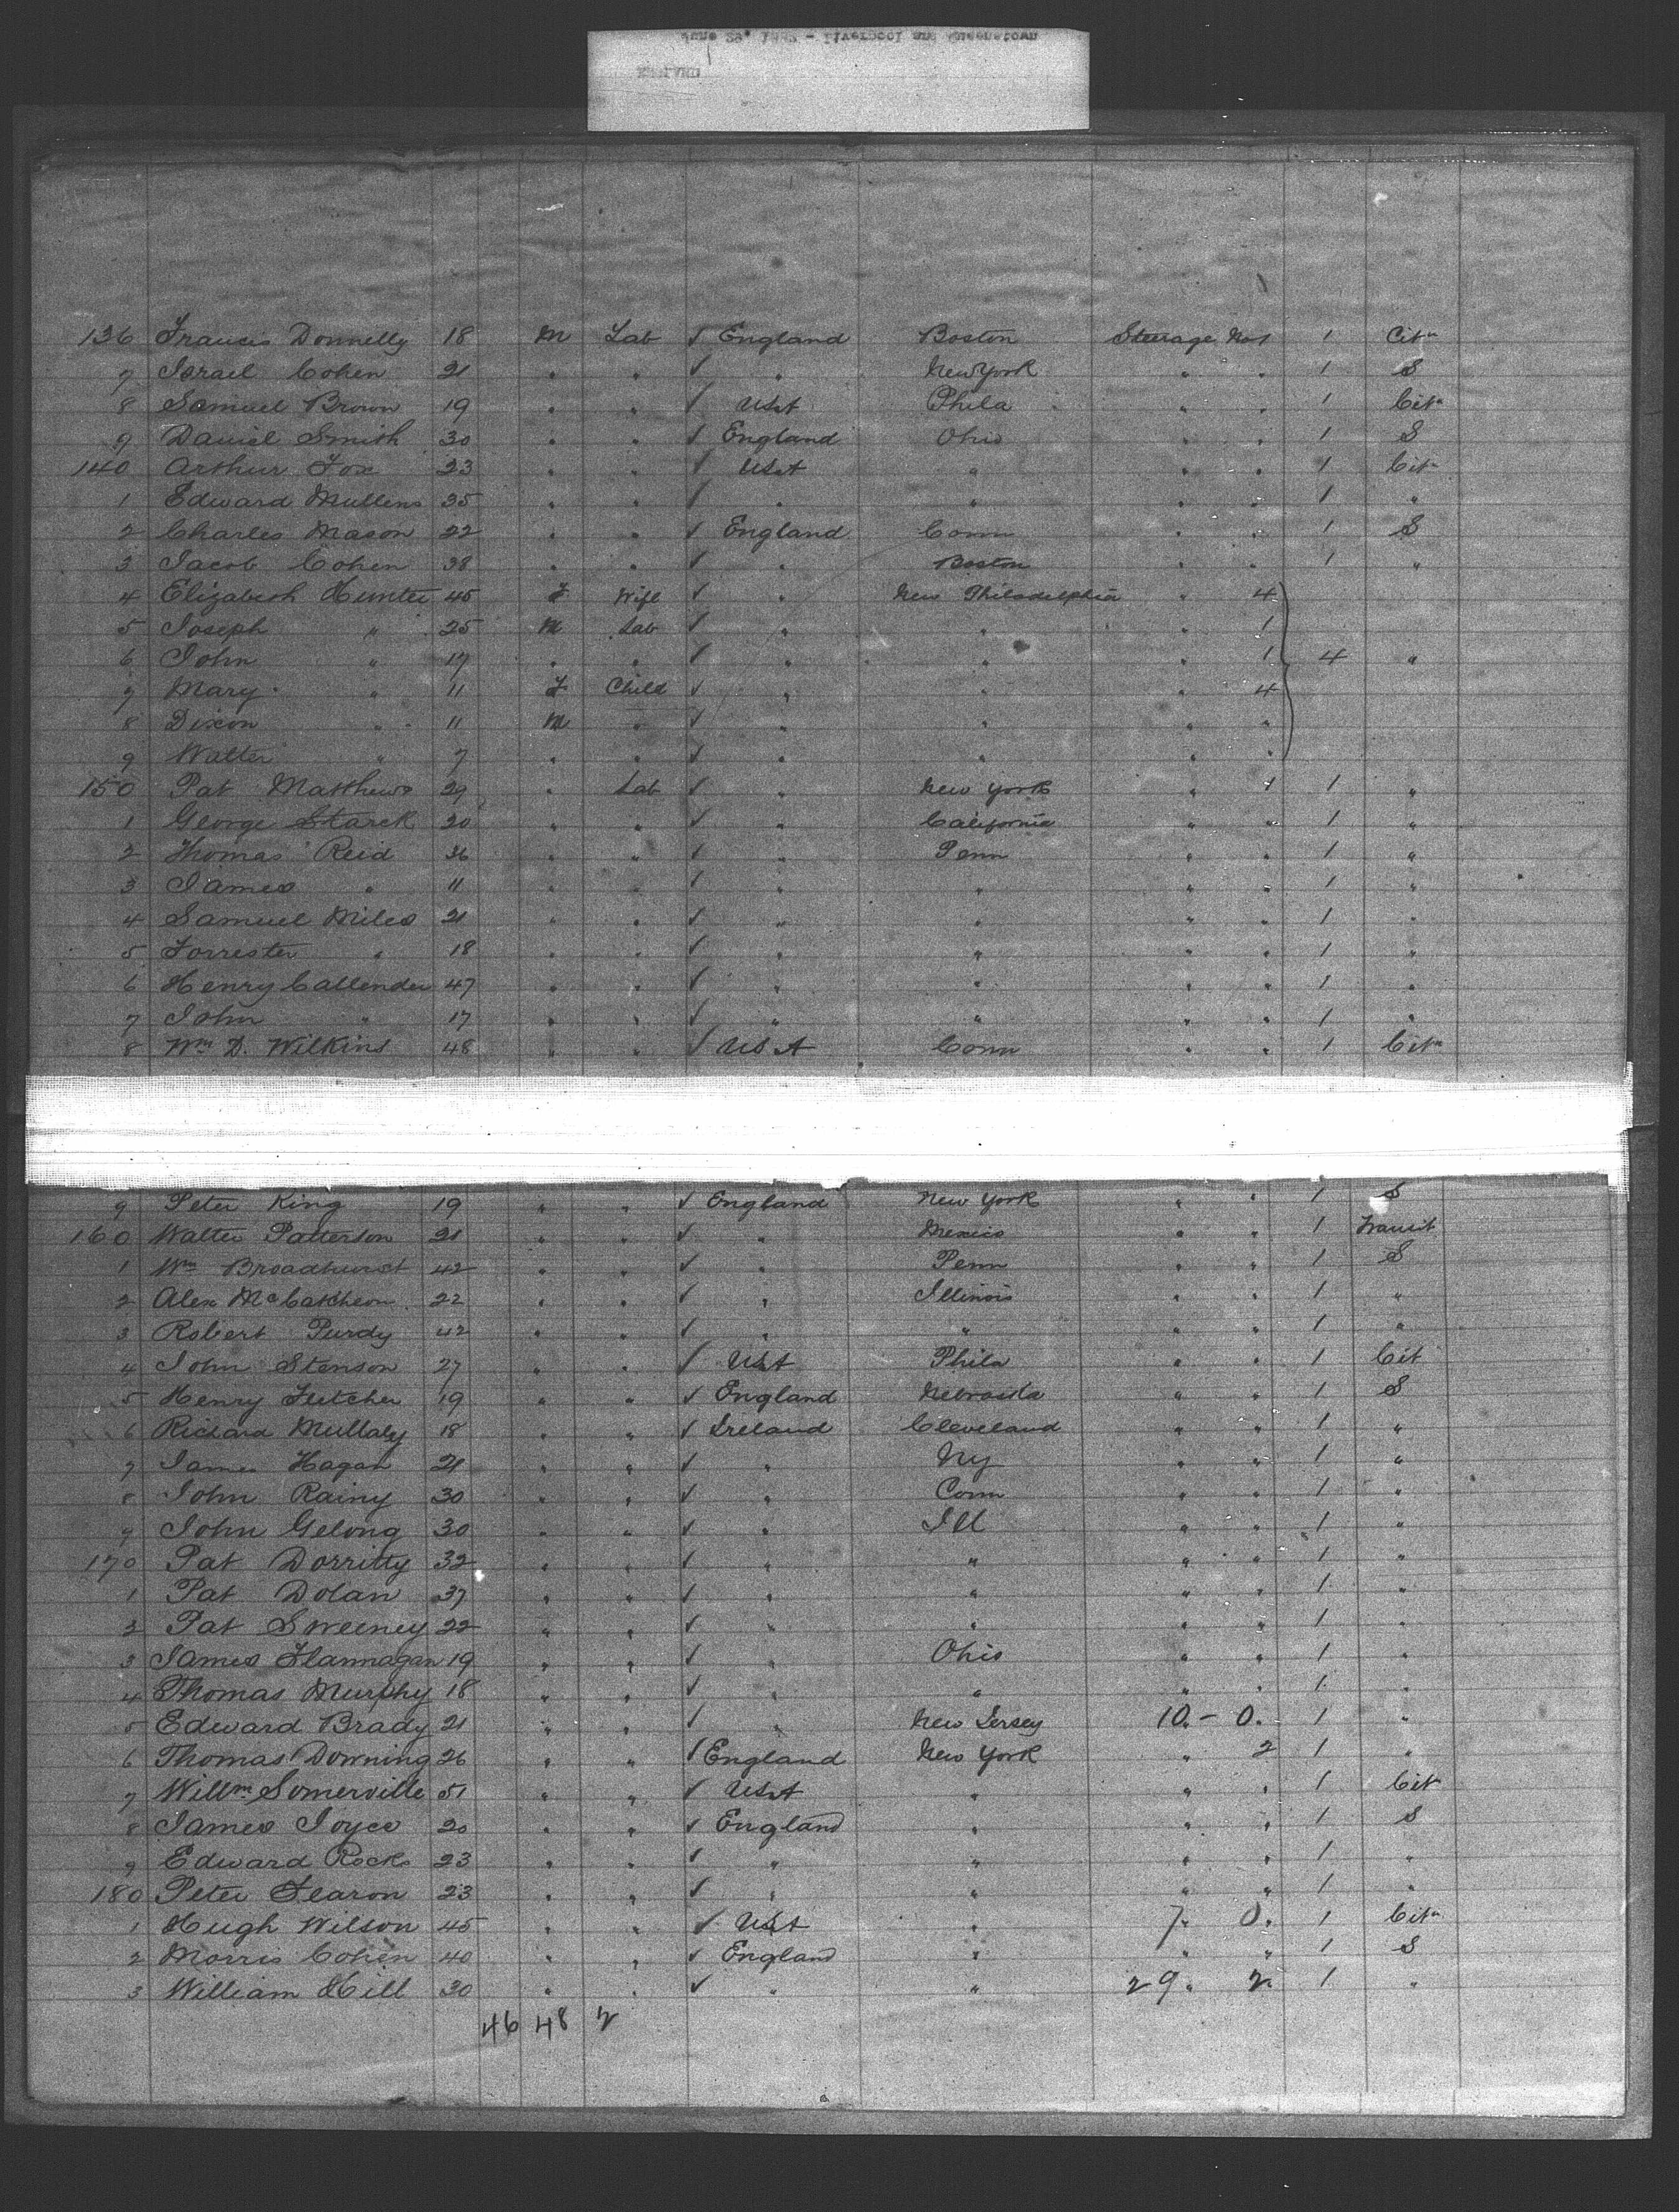 136 Francis Donnelly 18 M Lab ✓ England Boston Steerage No 1 1 Citn
7 Israel Cohen 21 " " ✓ " New York " " 1 S
8 Samuel Brown 19 " " ✓ USA Phila " " 1 Citn
9 Daniel Smith 30 " " ✓ England Ohio " " 1 S
140 Arthur Fox 23 " " ✓ USA " " " 1 Citn
1 Edward Mullens 35 " " ✓ " " " " 1 "
2 Charles Mason 22 " " ✓ England Conn " " 1 S
3 Jacob Cohen 38 " " ✓ " Boston " " 1 "
4 Elizabeth Hunter 45 F Wife ✓ " New Philadelphia " 4
5 Joseph " 25 M Lab ✓ " " " 1
6 John " 17 " " ✓ " " " 1 4 "
7 Mary " 11 F Child ✓ " " " 4
8 Dixon " 11 M " ✓ " " " "
9 Walter " 7 " " ✓ " " " "
150 Pat Matthews 29 " Lab ✓ " New York " 1 1 "
1 George Starck 20 " " ✓ " California " " 1 "
2 Thomas Reid 36 " " ✓ " Penn " " 1 "
3 James " 11 " " ✓ " " " " 1 "
4 Samuel Miles 21 " " ✓ " " " " 1 "
5 Forrester " 18 " " ✓ " " " " 1 "
6 Henry Callender 47 " " ✓ " " " " 1 "
7 John " 17 " " ✓ " " " " 1 "
8 Wm D. Wilkins 48 " " ✓ USA Conn " " 1 Citn
9 Peter King 19 " " ✓ England New York " " 1 S
160 Walter Patterson 21 " " ✓ " Mexico " " 1 Transit
1 Wm Broadhurst 42 " " ✓ " Penn " " 1 S
2 Alex McCatcheon 22 " " ✓ " Illinois " " 1 "
3 Robert Purdy 42 " " ✓ " " " " 1 "
4 John Stenson 27 " " ✓ USA Phila " " 1 Cit
5 Henry Fletcher 19 " " ✓ England Nebraska " " 1 S
6 Richard Mullaly 18 " " ✓ Ireland Cleveland " " 1 "
7 James Hagan 21 " " ✓ " Ny " " 1 "
8 John Rainy 30 " " ✓ " Conn " " 1 "
9 John Gelong 30 " " ✓ " Ill " " 1 "
170 Pat Dorritty 32 " " ✓ " " " " 1 "
1 Pat Dolan 37 " " ✓ " " " " 1 "
2 Pat Sweeney 22 " " ✓ " " " " 1 "
3 James Flannagan 19 " " ✓ " Ohio " " 1 "
4 Thomas Murphy 18 " " ✓ " " " " 1 "
5 Edward Brady 21 " " ✓ " New Jersey 10. - 0. 1 "
6 Thomas Downing 26 " " ✓ England New York " 2 1 "
7 Willm Somerville 51 " " ✓ USA " " " 1 Cit
8 James Joyce 20 " " ✓ England " " " 1 S
9 Edward Rocks 23 " " ✓ " " " " 1 "
180 Peter Fearon 23 " " ✓ " " " " 1 "
1 Hugh Wilson 45 " " ✓ USA " 7. 0. 1 Citn
2 Morris Cohen 40 " " ✓ England " " " 1 S
3 William Hill 30 " " ✓ " " 29. 2. 1 "
46 48 2